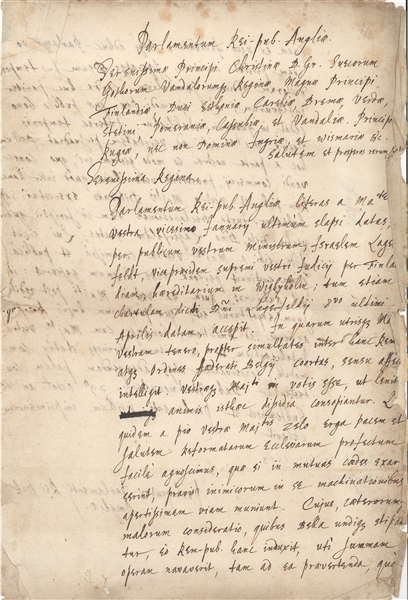 Parlamentum Rei-pub. Angliæ.
Serenissimæ Principi Christinæ D. Gr. Suecorum
Gothorum Vandalorumq Reginæ, Magnæ Principi
Finlandiæ Duci Esthoniæ, Careliæ, Bremæ, Verdæ,
Stetini Pomeraniæ, Cassubiæ, et Vandaliæ, Principi
Rugiæ, nec non Dominæ Ingriæ, et Wismariæ &c.
Salutem et prosperos rerum
Serenissima Regina.
Parlamentum Rei-pub. Angliæ literas a Mate
vestra, vicesimo January ultimum elapsi datas,
per publicum vestrum ministrum, Israelem Lager
feldt, vice præsidem supremi vestri Judicij per Finlan
diam, hæreditarium in; tum etiam
chartulam dicti Dni Lagerfeldij 8vo ultimi
Aprilis datam, accepit. In quarum utrisq Ma
vestram tenero, propter simultates inter hanc Rem
atq Ordines fæderati Belgij coortas, sensu affec
intelligit vestræq Majti in votis esse, ut lenit
animis isthæc disidia consopiantur.
quidem a pio vestræ Majtis zelo erga pacem et
salutem Reformatarum Ecclesiarum profectum
facile agnoscimus, quæ si in mutuas cædes exar
serint, pravis inimicorum in se machinationibus
apertissimam viam muniunt. Cujus, cæterorumq
malorum consideratio, quibus bella undiq stipan
tur, eò Rem-pub. hanc induxit, uti summam
operam navaverit, tam ad ea prævertenda, quæ